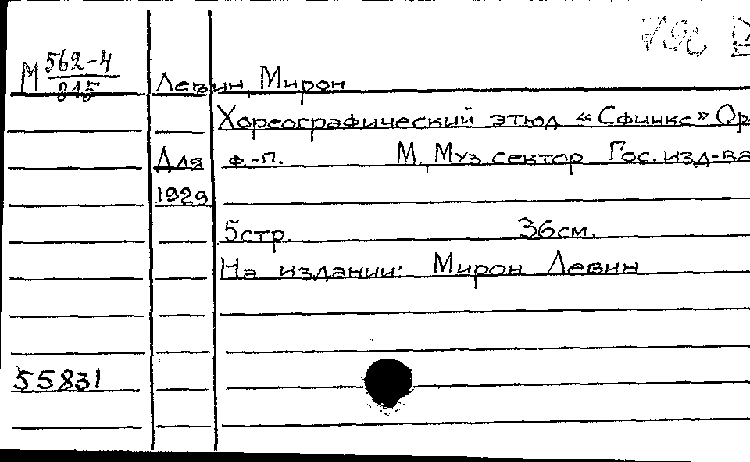 М 562-4
815
Левин, Мирон
Хореографический этюд «Сфинкс» Ор
Для ф.-п. М., Муз. сектор Гос. изд-ва
1929
5 стр. 36 см.
На издании: Мирон Левин
55831